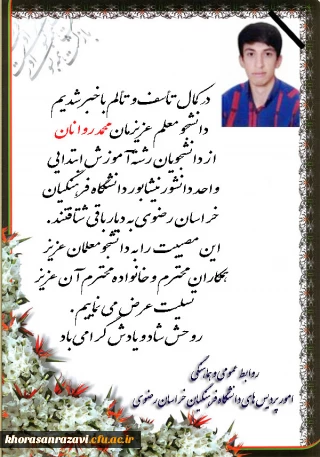 در کمال تأسف و تألم با خبر شدیم
دانشجو معلم عزیزمان محمد روانان
از دانشجویان رشته آموزش ابتدایی
واحد دانشور نیشابور دانشگاه فرهنگیان
خراسان رضوی به دیار باقی شتافتند.
این مصیبت را به دانشجو معلمان عزیز
همکاران محترم و خانواده محترم آن عزیز
تسلیت عرض می نماییم.
روحش شاد و یادش گرامی باد
روابط عمومی و هماهنگی
امور پردیس های دانشگاه فرهنگیان خراسان رضوی
khorasanrazavi.cfu.ac.ir